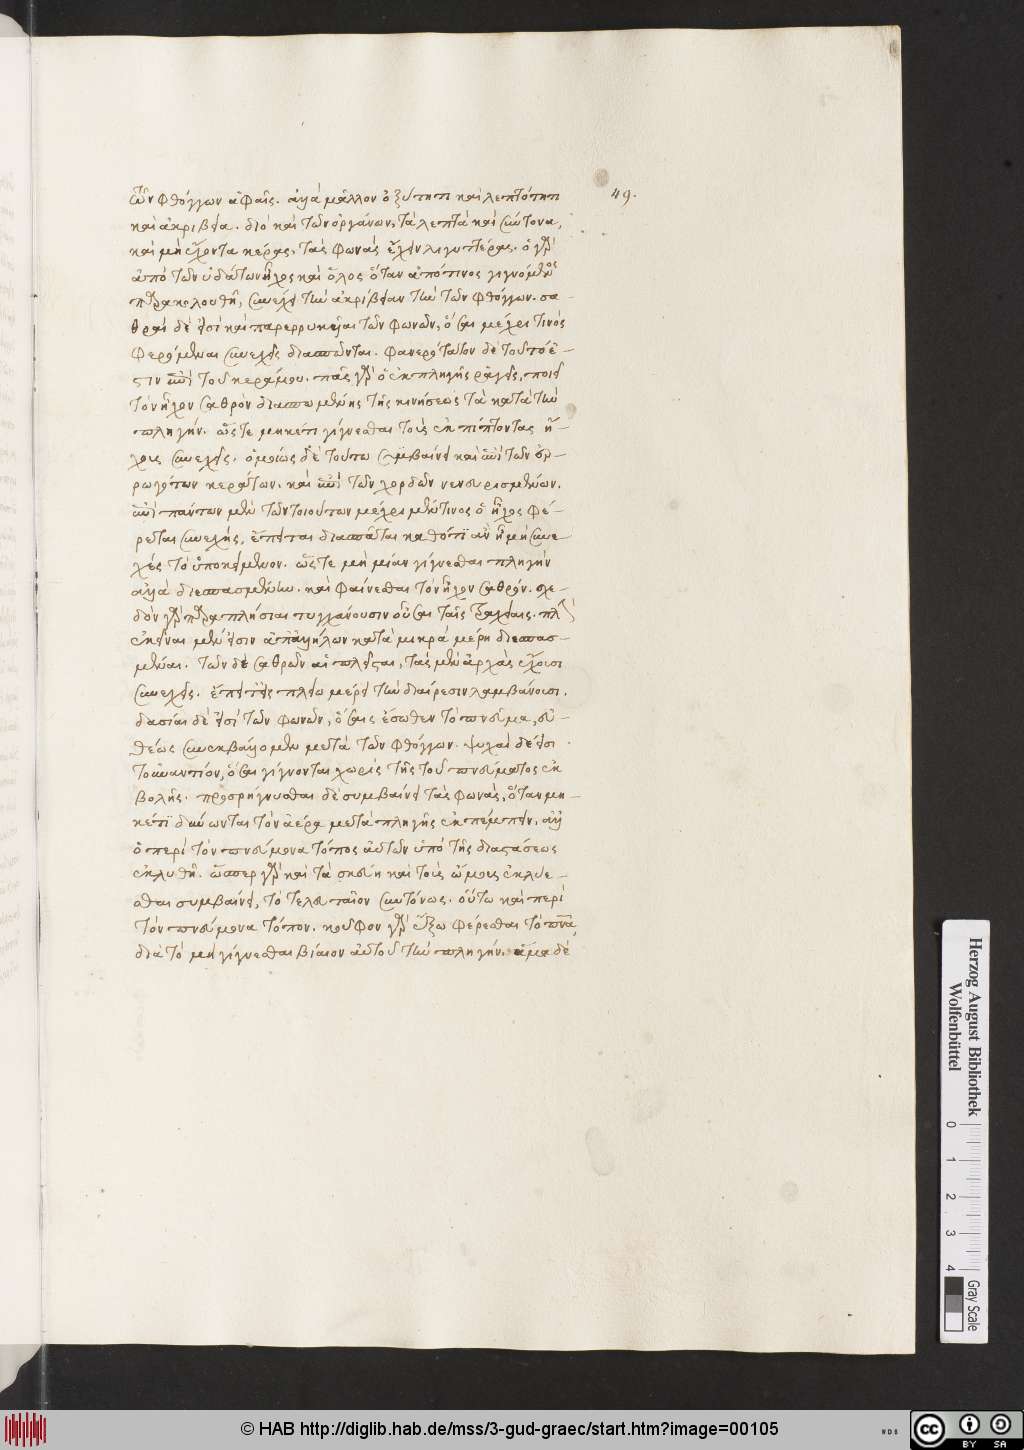 τῶν φθόγγων ἁφαῖς. ἀλλὰ μᾶλλον ὀξύτητι καὶ λεπτότητι
49.
καὶ ἀκριβεία. διὸ καὶ τῶν ὀργάνων, τὰ λεπτὰ καὶ σύντονα,
καὶ μὴ ἔχοντα κέρας, τὰς φωνὰς ἔχειν λιγυπτέρας. ὁ γὰρ
ἀπὸ τῶν ὑδάτων ἦχος καὶ ὅλος ὅταν ἀπό τινος γιγνόμενος
παρακολουθῇ, συνέχει τὴν ἀκρίβειαν τὴν τῶν φθόγγων. σα-
θραὶ δέ εἰσι καὶ παρερρυκεῖαι τῶν φωνῶν, ὅσαι μέχρι τινὸς
φερόμεναι συνεχεῖς διασπῶνται. φανερώτατον δὲ τοῦτό ἐ-
στιν ἐπὶ τοῦ κεράμου. πᾶς γὰρ ὁ ἐκ πληγῆς ῥαγεὶς, ποιεῖ
τὸν ἦχον σαθρὸν διασπωμένης τῆς κινήσεως τὰ κατὰ τὴν
πληγήν. ὥστε μηκέτι γίγνεσθαι τοὺς ἐκπίπτοντας ἤ-
χους συνεχεῖς. ὁμοίως δὲ τοῦτο συμβαίνει καὶ ἐπὶ τῶν ἐρ-
ρωγότων κεράτων. καὶ ἐπὶ τῶν χορδῶν νενευρισμένων.
ἐπὶ πάντων μὲν τῶν τοιούτων μέχρι μέν τινος ὁ ἦχος φέ-
ρεται συνεχὴς, ἔπειτα διασπᾶται καθότι ἂν ᾖ μὴ συνε-
χὲς τὸ ὑποκείμενον. ὥστε μὴ μίαν γίγνεσθαι πληγὴν
ἀλλὰ διεσπασμένην. καὶ φαίνεσθαι τὸν ἦχον σαθρόν. σχε-
δὸν γὰρ παραπλήσιαι τυγχάνουσιν οὖσαι ταῖς τραχείαις. πλὴν
ἐκεῖναι μέν εἰσιν ἀπ' ἀλλήλων κατὰ μικρὰ μέρη διεσπασ-
μέναι. τῶν δὲ σαθρῶν αἱ πλεῖσται, τὰς μὲν ἀρχὰς ἔχουσι
συνεχεῖς. ἔπειτ' εἰς πλείω μέρη τὴν διαίρεσιν λαμβάνουσι.
δασεῖαι δέ εἰσὶ τῶν φωνῶν, ὅσαις ἔσωθεν τὸ πνεῦμα, εὐ-
θέως συνεκβάλλομεν μετὰ τῶν φθόγγων. ψιλαὶ δέ εἰσι
τοὐναντίον, ὅσαι γίγνονται χωρὶς τῆς τοῦ πνεύματος ἐκ
βολῆς. προσρήγνυσθαι δὲ συμβαίνει τὰς φωνὰς, ὅταν μη-
κέτι δύνωνται τὸν ἀέρα μετὰ πληγῆς ἐκπέμπειν, ἀλλ'
ὁ περὶ τὸν πνεύμονα τόπος αὐτῶν ὑπὸ τῆς διαστάσεως
ἐκλυθῇ. ὥσπερ γὰρ καὶ τὰ σκέλη καὶ τοὺς ὤμους ἐκλύε-
σθαι συμβαίνει, τὸ τελευταῖον συντόνως. οὕτω καὶ περὶ
τὸν πνεύμονα τόπον. κοῦφον γὰρ ἔξω φέρεσθαι τὸ πνεῦμα,
διὰ τὸ μὴ γίγνεσθαι βίαιον αὐτοῦ τὴν πληγήν. ἅμα δὲ
Herzog August Bibliothek
Wolfenbüttel
0 1 2 3 4
Gray Scale
© HAB http://diglib.hab.de/mss/3-gud-graec/start.htm?image=00105
cc BY SA